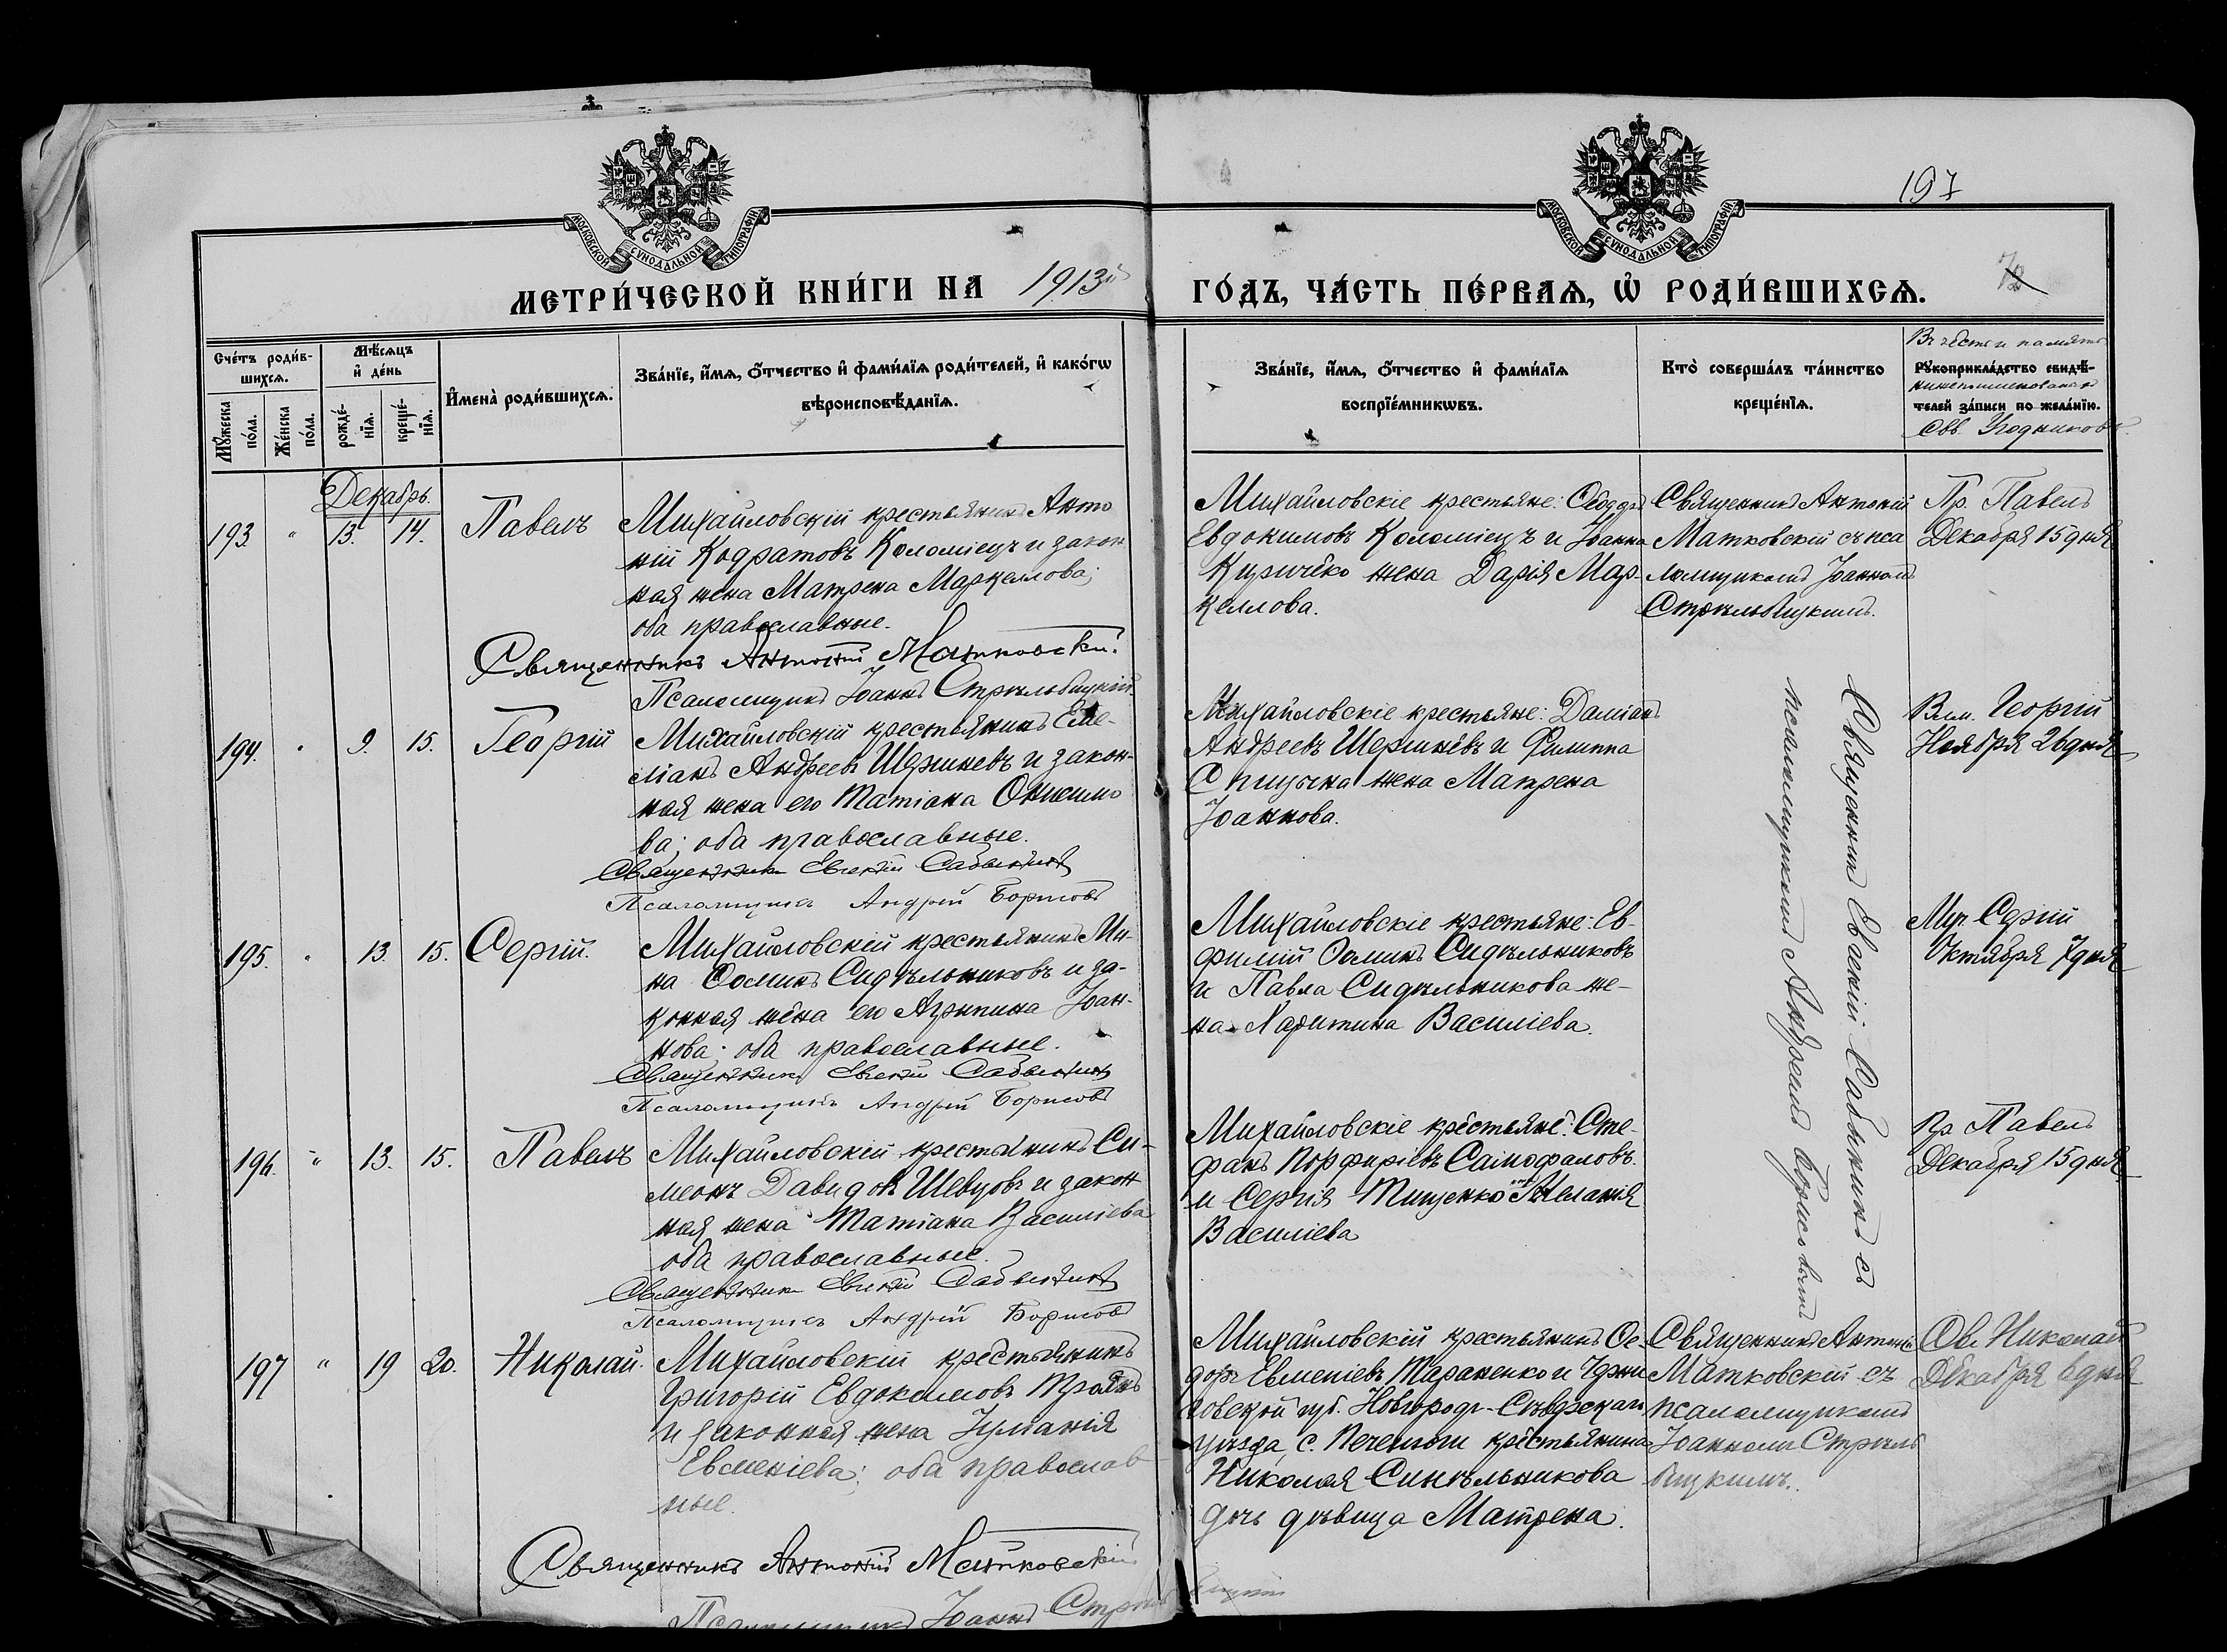 МОСКОВСКОЙ СѴНОДАЛЬНОЙ ТИПОГРАФІИ
МОСКОВСКОЙ СѴНОДАЛЬНОЙ ТИПОГРАФІИ
197
МЕТРИ́ЧЕСКОЙ КНИ́ГИ НА 1913й
ГО́ДЪ, ЧА́СТЬ ПЕ́РВАѦ, Ѡ҆ РОДИ́ВШИХСѦ.
Счéтъ роди́в-
шихсѧ.
Мѣ́сѧцъ
и҆ де́нь
Мꙋ́жеска по́ла.
Же́нска по́ла.
рожде́-
нїѧ.
креще́-
нїѧ.
И҆мена̀ роди́вшихсѧ.
Зва́нїе, и҆́мѧ, ѻ҆́тчество и҆ фами́лїѧ роди́телей, и҆ како́гѡ
вѣроисповѣ́данїѧ.
Зва́нїе, и҆́мѧ, ѻ҆́тчество и҆ фами́лїѧ
воспрїе́мникѡвъ.
Кто̀ соверша́лъ та́инство
креще́нїѧ.
Въ честь и память
Рꙋкоприкла́дство свидѣ́-
нижепоименованныхъ
телей за́писи по жела́нїю.
Свв. Угодниковъ.
Декабрь.
193. " 13. 14. Павелъ
Михайловскій крестьянинъ Анто
ній Кодратовъ Коломіецъ и закон
ная жена Матрена Маркеллова;
оба православные.
Священникъ Антоній Матковскій.
Псаломщикъ Іоаннъ Стрѣльбицкій
Михайловскіе крестьяне: Ѳеодоръ
Евдокимовъ Коломіецъ и Іоанна
Киричеко жена Дарія Мар-
келлова.
Священникъ Антоній
Матковскій съ пса
ломщикомъ Іоанномъ
Стрѣльбицкимъ.
Пр. Павелъ
Декабря 15 дня
194. " 9. 15. Георгій
Михайловскій крестьянинъ Еме-
ліанъ Андреевъ Шершневъ и закон-
ная жена его Татіана Онисимо
ва; оба православные.
Священникъ Евгеній Сабынинъ
Псаломщикъ Андрей Борисовъ
Михайловскіе крестьяне: Даміанъ
Андреевъ Шершневъ и Филиппа
Спицына жена Матрена
Іоаннова.
Священникъ Евгеній Сабынинъ съ
псаломщикомъ Андреемъ Борисовымъ
Влм. Георгій
Ноября 26 дня
195. " 13. 15. Сергій.
Михайловскій крестьянинъ Ми-
на Ѳоминъ Сидѣльниковъ и за-
конная жена его Агрипина Іоан-
нова; оба православные.
Священникъ Евгеній Сабынинъ
Псаломщикъ Андрей Борисовъ
Михайловскіе крестьяне: Ев-
фимій Ѳоминъ Сидѣльниковъ
и Павла Сидѣльникова же-
на Харитина Василіева.
Муч. Сергій
Октября 7 дня
196. " 13. 15. Павелъ
Михайловскій крестьянинъ Си-
меонъ Давидовъ Шевцовъ и закон
ная жена Татіана Василіева
оба православные.
Священникъ Евгеній Сабынинъ
Псаломщикъ Андрей Борисовъ
Михайловскіе крестьяне: Сте-
фанъ Порфиріевъ Самофаловъ
и Сергія Тищенко Меланія
Василіева
Пр Павелъ
Декабря 15 дня
197 " 19 20. Николай.
Михайловскій крестьянинъ
Григорій Евдокимовъ Троянъ
и законная жена Іуліанія
Евменіева; оба православ-
ные.
Священникъ Антоній Матковскій
Псаломщикъ Іоаннъ Стрѣльбицкій
Михайловскій крестьянинъ Ѳе-
доръ Евменіевъ Тараненко и Черни
говской губ. Новгородъ-Сѣверскаго
уѣзда, с. Печенюги крестьянина
Николая Синѣльникова
дочь дѣвица Матрена.
Священникъ Антоній
Матковскій съ
псаломщикомъ
Іоанномъ Стрѣль
бицкимъ.
Свв. Николай
Декабря 6 дня